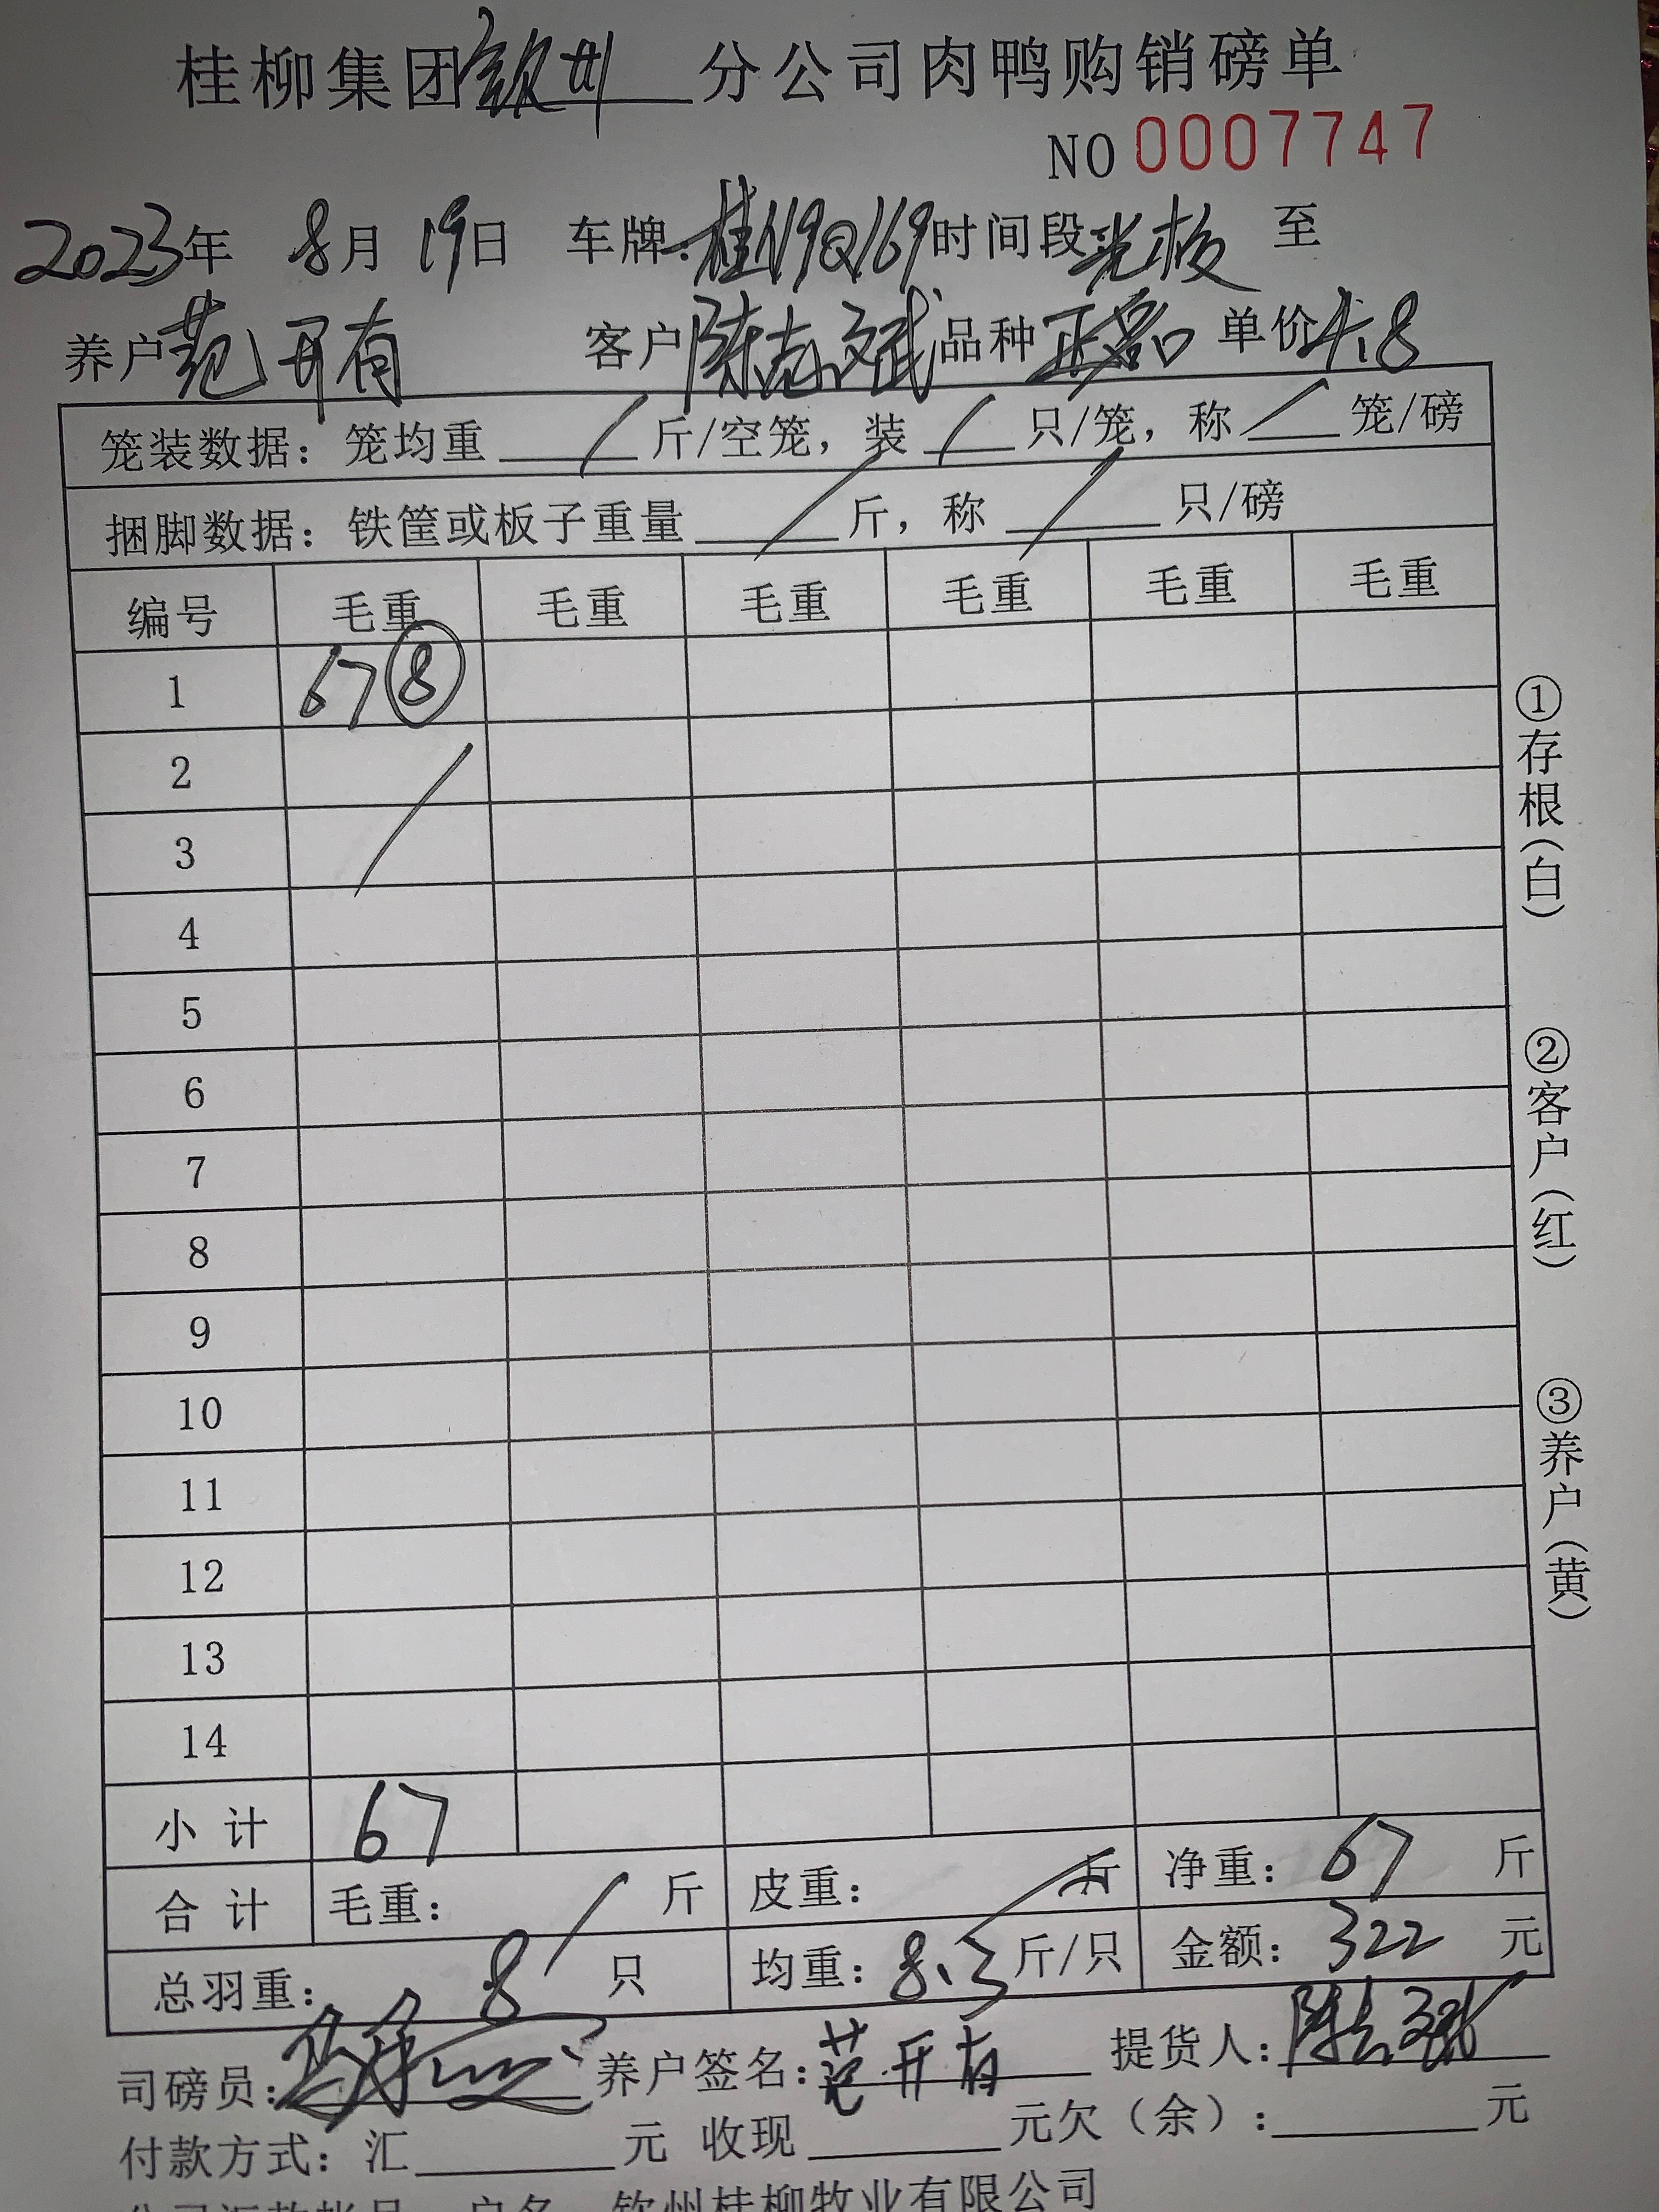 桂柳集团钦州分公司肉鸭购销磅单
NO 0007747
2023年 8月 19日 车牌:桂N9Q169时间段 至
养户范开有 客户陈志斌品种 单价4.8
笼装数据: 笼均重 / 斤/空笼, 装 / 只/笼, 称 / 笼/磅
捆脚数据: 铁筐或板子重量 / 斤, 称 / 只/磅
编号 毛重 毛重 毛重 毛重 毛重 毛重
1 67 ⑧
2
3
4
5
6
7
8
9
10
11
12
13
14
小计 67
合计 毛重: / 斤 皮重: / 斤 净重: 67 斤
总羽重: 8 只 均重: 8.3 斤/只 金额: 322 元
司磅员: 养户签名:范开有 提货人:陈志斌
付款方式: 汇 元 收现 元欠(余): 元
户名 钦州桂柳牧业有限公司
①存根(白)
②客户(红)
③养户(黄)